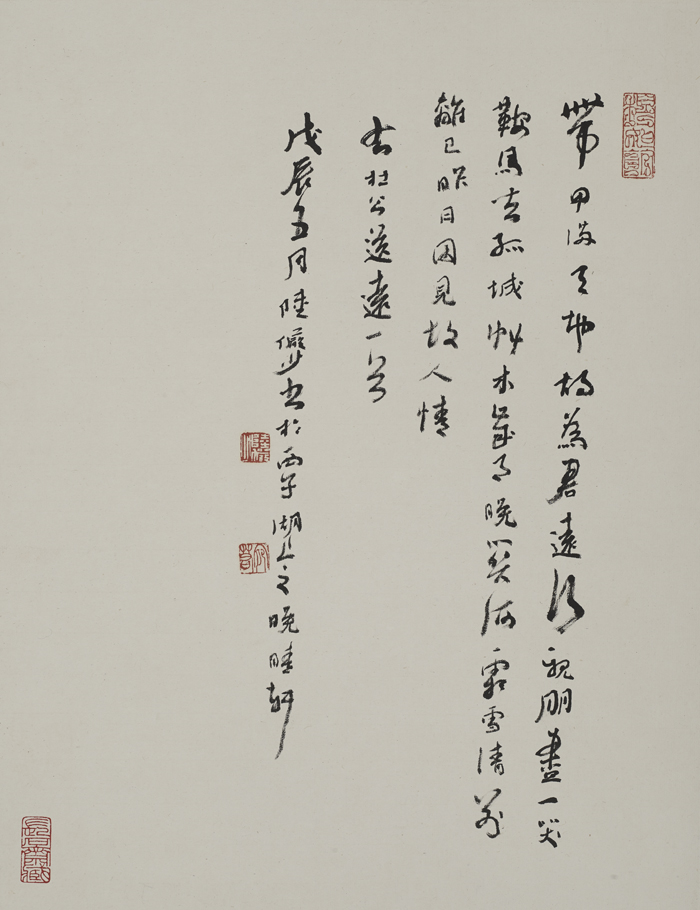 帶甲滿天地胡為君遠行親朋盡一哭
鞍馬去孤城艸木歲月晚關河霜雪清別
離已昨日因見故人情
右杜公送遠一首
戊辰五月陸儼少書於西子湖上之晚晴軒